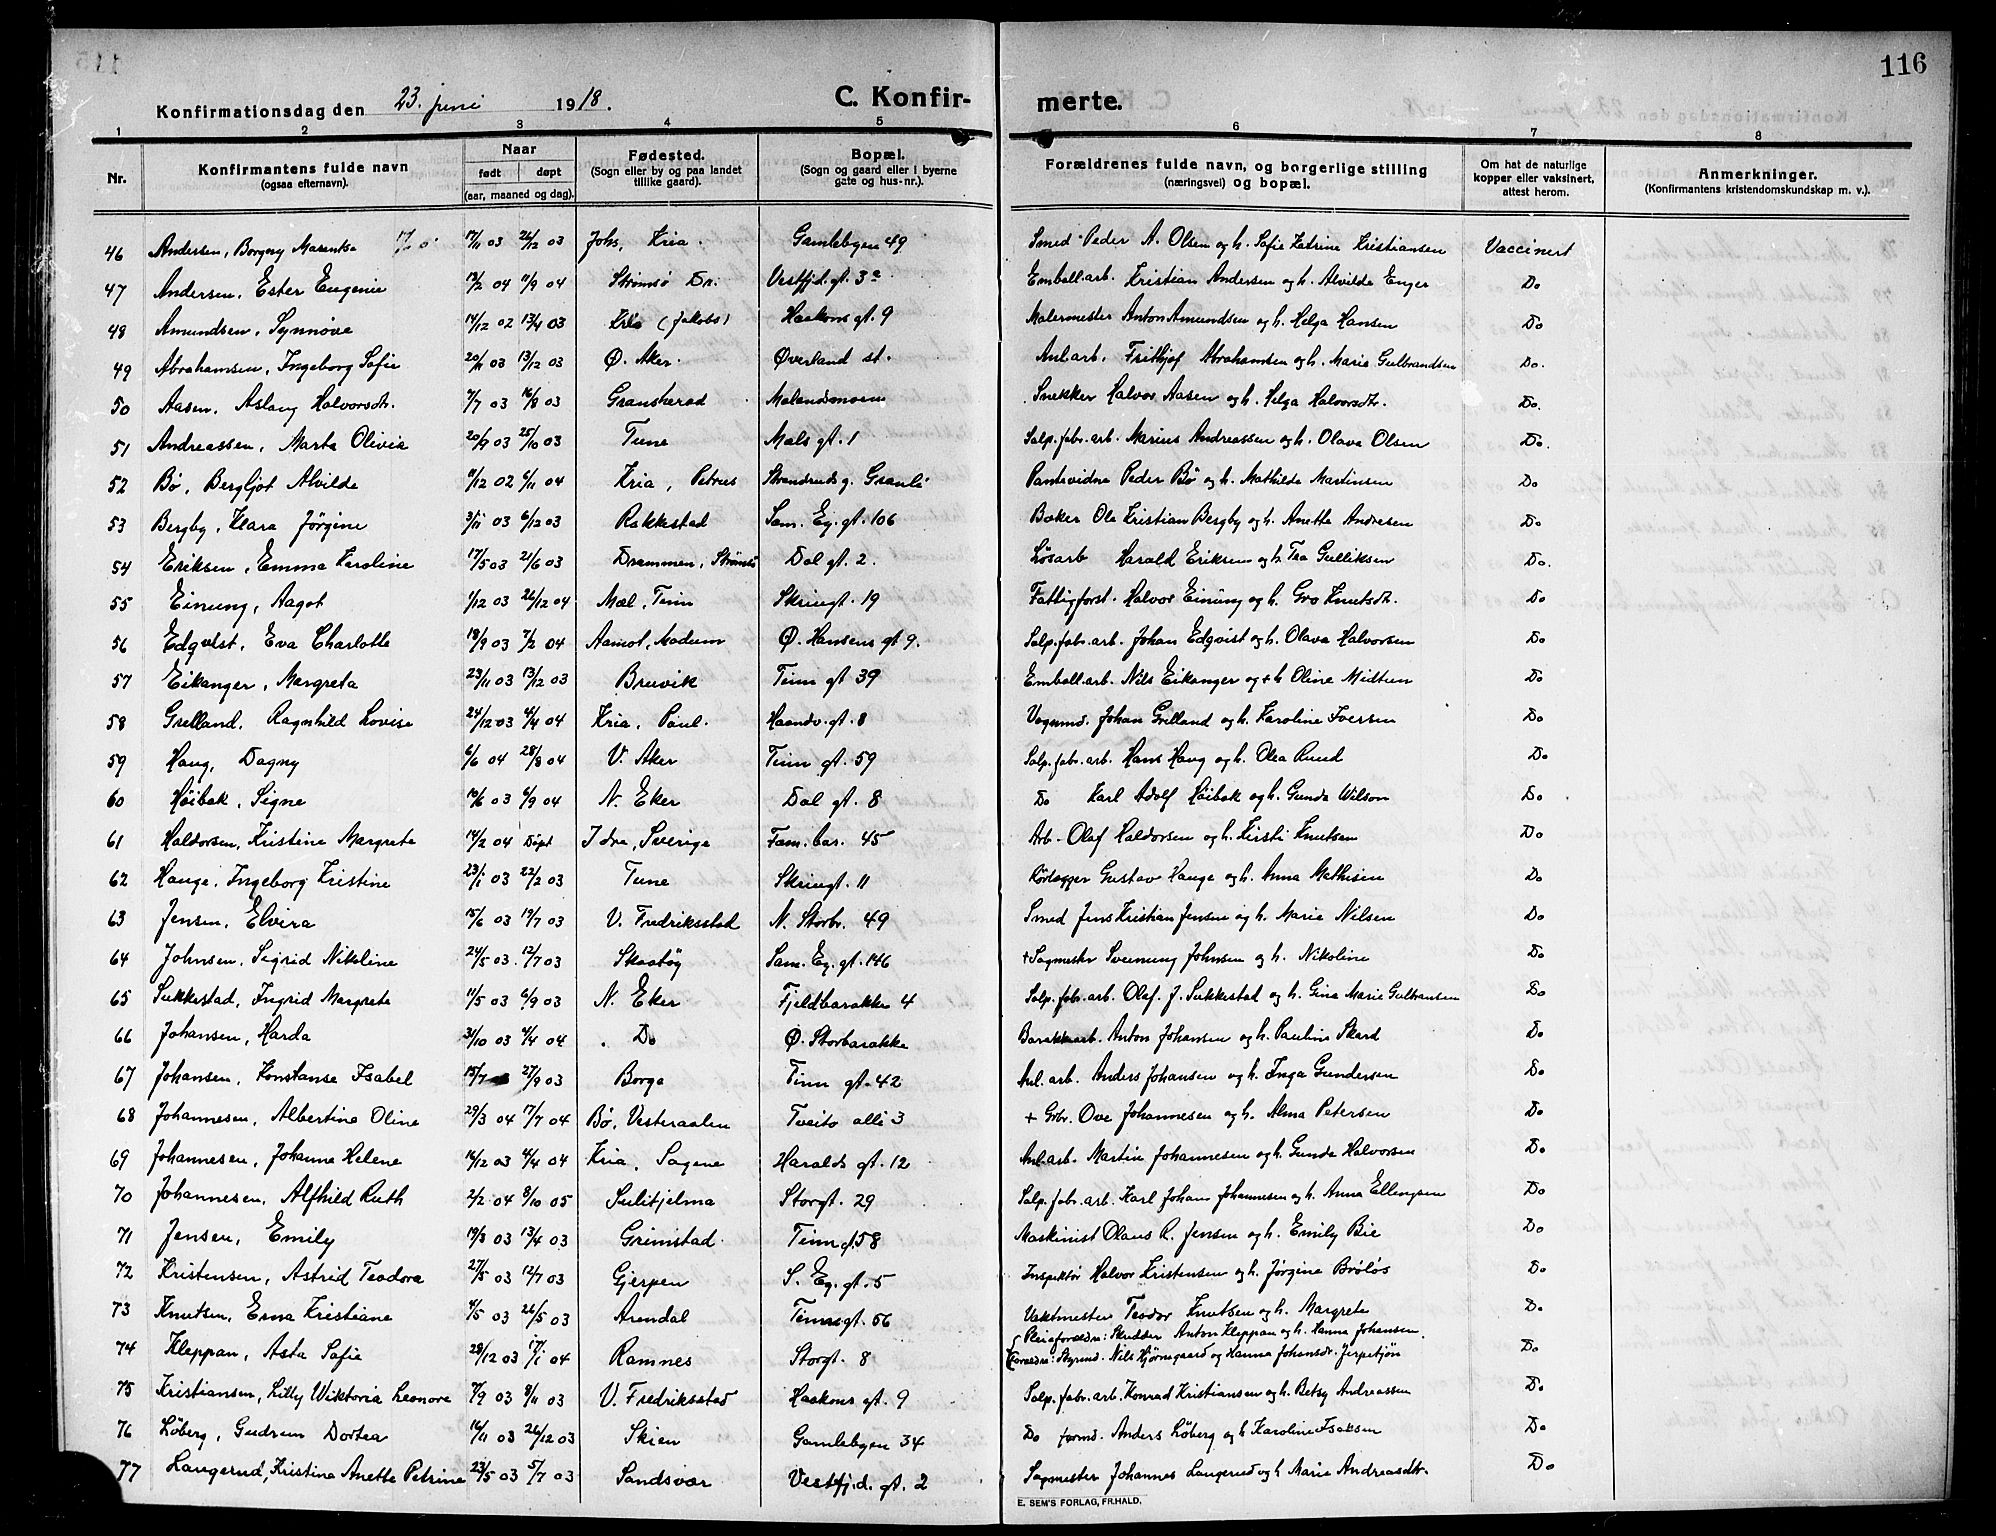 116
Konfirmationsdag den 23. juni 1918. C. Konfir- merte.
1 2 3 4 5 6 7 8
Nr. Konfirmantens fulde navn (ogsaa efternavn). Naar født døpt (aar, maaned og dag). Fødested. (Sogn eller by og paa landet tillike gaard). Bopæl. (Sogn og gaard eller i byerne gate og hus-nr.). Forældrenes fulde navn, og borgerlige stilling (næringsvei) og bopæl. Om hat de naturlige kopper eller vaksinert, attest herom. Anmerkninger. (Konfirmantens kristendomskundskap m. v.).
46 Andersen, Borgny Marentse 17/11 03 26/12 03 Johs, Kria. Gamlebyen 49 Smed Peder A. Olsen og h. Sofie Katrine Kristiansen Vaccinert
47 Andersen, Ester Eugenie 13/2 04 11/9 04 Strømsø Dr. Vestfjd. gt. 3a Emball.arb. Kristian Andersen og h. Alvilde Enger Do
48 Amundsen, Synnøve 14/12 02 13/4 03 Kria (Jakobs) Haakons gt. 9 Malermester Anton Amundsen og h. Helga Hansen Do
49 Abrahamsen, Ingeborg Sofie 20/11 03 13/12 03 Ø. Aker. Øverland st. Anl.arb. Frithjof Abrahamsen og h. Marie Gulbrandsen Do.
50 Aasen, Aslaug Halvorsdt. 7/7 03 16/8 03 Gransherad Mælandsmoen Snekker Halvor Aasen og h. Helga Halvorsdt. Do.
51 Andreassen, Marta Olivia 20/9 03 25/10 03 Tune Mæls gt. 1 Salp.fabr.arb. Marius Andreassen og h. Olava Olsen Do.
52 Bø, Bergljot Alvilde 11/12 02 6/11 04 Kria, Petrus Strandrud g. Granli Pantevidne Peder Bø og h. Mathilde Martinsen Do
53 Bergby, Klara Jørgine 3/11 03 6/12 03 Rakkestad Sam. Eg. gt. 106 Baker Ole Kristian Bergby og h. Anette Andresen Do
54 Eriksen, Emma Karoline 17/5 03 21/6 03 Drammen, Strømsø Dal gt. 2. Løsarb Harald Eriksen og h. Tea Gulliksen Do.
55 Einung, Aagot 1/12 03 26/12 04 Mæl, Tinn Skriugt. 19 Fattigforst. Halvor Einung og h. Gro Knutsdt. Do
56 Edqvist, Eva Charlotte 18/9 03 7/2 04 Aamot, Modum Ø. Hansens gt 9. Salp.fabr.arb. Johan Edqvist og h. Olava Halvorsen Do
57 Eikanger, Margreta 23/11 03 13/12 03 Bruvik Tinn gt 39 Emball.arb. Nils Eikanger og + h Oline Midtun Do
58 Grelland, Ragnhild Lovise 24/12 03 4/4 04 Kria, Paul. Haandv. gt. 8 Vognmd. Johan Grelland og h. Karoline Iversen Do
59 Haug, Dagny 6/6 04 28/8 04 V. Aker Tinn gt. 59 Salp.fabr.arb. Hans Haug og h. Olea Ruud Do
60 Høibak, Signe 10/6 03 6/9 04 N. Eker Dal gt. 8 Do Karl Adolf Høibak og h. Gunda Wilson Do
61 Haldorsen, Kristine Margrete 14/2 04 Døpt Idre, Sverige Fam. bar. 45 Arb. Olaf Haldorsen og h. Kirsti Knutsen Do
62 Hauge, Ingeborg Kristine 23/1 03 22/2 03 Tune Skriugt. 11 Rørlægger Gustav Hauge og h. Anna Mathisen Do
63 Jensen, Elvira 15/6 03 19/7 03 V. Fredriksstad N. Storbr. 49 Smed Jens Kristian Jensen og h. Marie Nilsen Do
64 Johnsen, Sigrid Nikoline 24/5 03 12/7 03 Skaatøy Sam. Eg. gt. 146 + Sagmestr Sveinung Johnsen og h. Nikoline Do
65 Sukkestad, Ingrid Margrete 11/5 03 6/9 03 N. Eker Fjeldbarakke 4 Salp.fabr.arb. Olaf. J. Sukkestad og h. Gina Marie Gulbransen Do
66 Johansen, Harda 31/10 03 4/4 04 Do Ø. Storbarakke Barakkearb. Anton Johansen og h. Pauline Skard Do
67 Johansen, Konstanse Isabel 15/7 27/9 03 Borge Tinn gt. 42 Anl.arb. Anders Johansen og h. Inga Gundersen Do
68 Johannesen, Albertine Oline 29/3 04 17/7 04 Bø, Vesteraalen Tveito allé 3 + Grbr. Ove Johannesen og h. Alma Petersen Do
69 Johannesen, Johanne Helene 16/12 03 4/4 04 Kria, Sagene Haralds gt. 12 Anl.arb. Martin Johannesen og h. Gunda Halvorsen Do
70 Johannesen, Alfhild Ruth 2/2 04 8/10 05 Sulitjelma Storgt. 29 Salp.fabr.arb. Karl Johan Johannesen og h. Anna Ellingsen Do
71 Jensen, Emily 19/3 03 13/4 03 Grimstad Tinn gt. 58 Maskinist Olaus R. Jensen og h. Emily Bie Do
72 Kristensen, Astrid Teodora 27/5 03 12/7 03 Gjerpen S. Eg. gt. 5 Inspektør Halvor Kristensen og h. Jørgine Brøløs Do
73 Knutsen, Erna Kristiane 4/5 03 26/5 03 Arendal Tinnsgt. 56 Vaktmester Teodor Knutsen og h. Margrete Do
74 Kleppan, Asta Sofie 28/12 03 17/1 04 Ramnes Storgt. 8 Pleieforældre: Skrædder Anton Kleppan og h. Hanna Johansen. Do
Forældre: Styrmd. Nils Hjørnegaard og Hanna Johansdr. Jerpetjøn
75 Kristiansen, Lilly Wiktoria Leonora 7/9 03 8/11 03 V. Fredriksstad Haakons gt. 9 Salp.fabr.arb. Konrad Kristiansen og h. Betsy Andreassen Do
76 Løberg, Gudrun Dortea 16/11 03 26/12 03 Skien Gamlebyen 34 Do formd. Anders Løberg og h Karoline Isaksen Do
77 Langerud, Kristine Anette Petrine 23/5 03 5/7 03 Sandsvær Vestfj.d. gt. 2 Sagmester Johannes Langerud og h Marie Andreasdtr. Do
E. SEM'S FORLAG, FR.HALD.